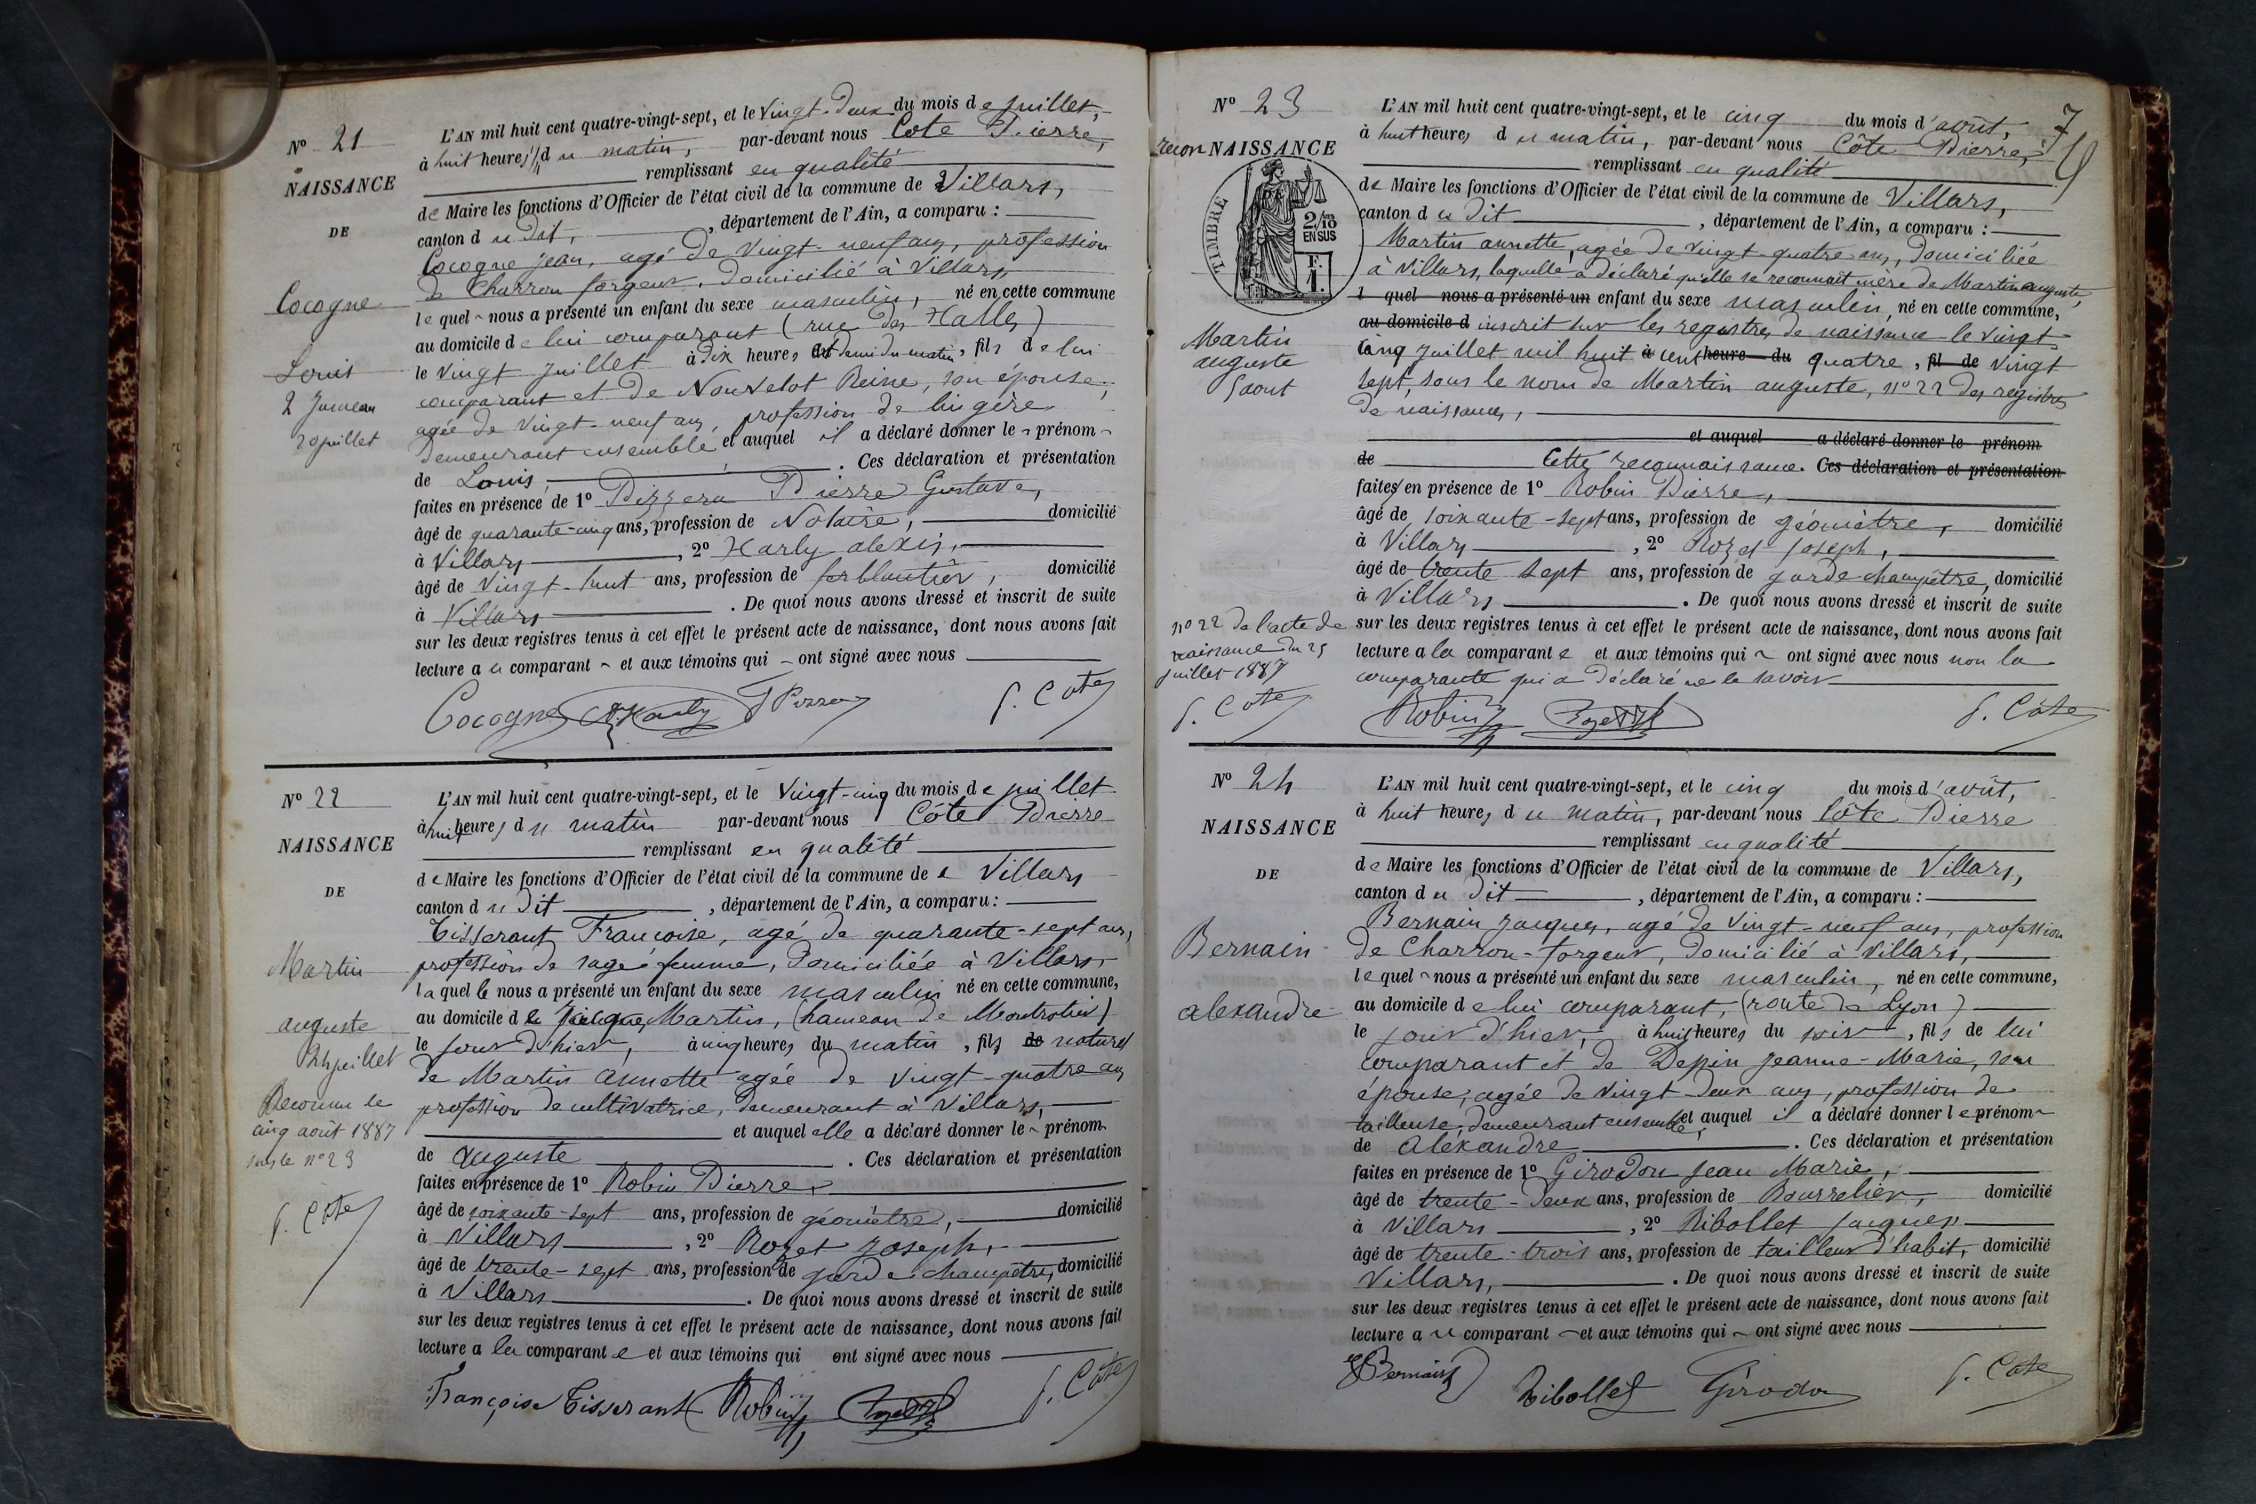 Nº 21
NAISSANCE
DE
Cocogne
Louis
2 Jumeau
20 juillet
L'AN mil huit cent quatre-vingt-sept, et le vingt-deux du mois de juillet,
à huit heures 1/2 du matin, par-devant nous Côte Pierre,
remplissant en qualité
de Maire les fonctions d'Officier de l'état civil de la commune de Villars,
canton du dit, département de l'Ain, a comparu :
Cocogne jean, agé de vingt-neuf ans, profession
de Charron forgeur, domicilié à Villars,
lequel nous a présenté un enfant du sexe masculin, né en cette commune
au domicile de lui comparant (rue des Halles)
le vingt juillet à dix heures et demi du matin, fils de lui
comparant et de Nouvelot Reine, son épouse,
agée de vingt-neuf ans, profession de lingère
demeurant ensemble et auquel il a déclaré donner le prénom
de Louis, . Ces déclaration et présentation
faites en présence de 1º Pizzera Pierre Gustave,
âgé de quarante-cinq ans, profession de Notaire, domicilié
à Villars, 2º Harly alexis,
âgé de vingt-huit ans, profession de ferblantier, domicilié
à Villars . De quoi nous avons dressé et inscrit de suite
sur les deux registres tenus à cet effet le présent acte de naissance, dont nous avons fait
lecture au comparant et aux témoins qui ont signé avec nous
Cocogne A. Harly P. Côte
Nº 22
NAISSANCE
DE
Martin
auguste
24 juillet
Reconnu le
cinq août 1887
sous le nº 23
P. Côte
L'AN mil huit cent quatre-vingt-sept, et le vingt-cinq du mois de juillet
à huit heures du matin par-devant nous Côte Pierre
remplissant en qualité
de Maire les fonctions d'Officier de l'état civil de la commune de Villars
canton du dit, département de l'Ain, a comparu :
Tisserant Françoise, agé de quarante-sept ans,
profession de sage femme, domiciliée à Villars,
laquelle nous a présenté un enfant du sexe masculin né en cette commune,
au domicile de Martin, (hameau de Montrotier)
le jour d'hier, à cinq heures du matin, fils de naturel
de Martin Annette agée de vingt-quatre ans
profession de cultivatrice, demeurant à Villars,
et auquel elle a déclaré donner le prénom
de auguste . Ces déclaration et présentation
faites en présence de 1º Robin Pierre,
âgé de soixante-sept ans, profession de géomètre, domicilié
à Villars, 2º Rozet joseph,
âgé de trente-sept ans, profession de garde champêtre, domicilié
à Villars . De quoi nous avons dressé et inscrit de suite
sur les deux registres tenus à cet effet le présent acte de naissance, dont nous avons fait
lecture a la comparante et aux témoins qui ont signé avec nous
Françoise Tisserant Robin Rozet P. Côte
7
Nº 23
recon NAISSANCE
TIMBRE
2/10
EN SUS
F.
1.
Martin
auguste
5 aout
nº 22 de l'acte de
naissance du 25
juillet 1887
P. Côte
L'AN mil huit cent quatre-vingt-sept, et le cinq du mois d'août,
à huit heures du matin, par-devant nous Côte Pierre,
remplissant en qualité
de Maire les fonctions d'Officier de l'état civil de la commune de Villars,
canton du dit, département de l'Ain, a comparu :
Martin annette, agée de vingt-quatre ans, domiciliée
à Villars, laquelle a déclaré qu'elle se reconnait mère de Martin auguste,
l quel nous a présenté un enfant du sexe masculin, né en cette commune,
au domicile d inscrit sur les registres de naissance le vingt
cinq juillet mil huit à cent heure du quatre, fil de vingt
sept, sous le nom de Martin auguste, nº 22 des registres
de naissances,
et auquel a déclaré donner le prénom
de Cette reconnaissance. Ces déclaration et présentation
faites en présence de 1º Robin Pierre,
âgé de soixante-sept ans, profession de géomètre, domicilié
à Villars, 2º Rozet joseph,
âgé de trente sept ans, profession de garde champêtre, domicilié
à Villars . De quoi nous avons dressé et inscrit de suite
sur les deux registres tenus à cet effet le présent acte de naissance, dont nous avons fait
lecture a la comparante et aux témoins qui ont signé avec nous non la
comparante qui a déclaré ne le savoir
Robin Rozet P. Côte
Nº 24
NAISSANCE
DE
Bernain
alexandre
L'AN mil huit cent quatre-vingt-sept, et le cinq du mois d'août,
à huit heures du matin, par-devant nous Côte Pierre
remplissant en qualité
de Maire les fonctions d'Officier de l'état civil de la commune de Villars,
canton du dit, département de l'Ain, a comparu :
Bernain jacques, agé de vingt-neuf ans, profession
de Charron-forgeur, domicilié à Villars,
lequel nous a présenté un enfant du sexe masculin, né en cette commune,
au domicile de lui comparant, (route de Lyon)
le jour d'hier, à huit heures du soir, fils de lui
comparant et de Depin jeanne-Marie, son
épouse, agée de vingt-deux ans, profession de
tailleuse, demeurant ensemble, et auquel il a déclaré donner le prénom
de alexandre . Ces déclaration et présentation
faites en présence de 1º Girodon jean Marie,
âgé de trente-deux ans, profession de Bourrelier, domicilié
à Villars, 2º Ribollet jacques
âgé de trente-trois ans, profession de tailleur d'habit, domicilié
Villars, . De quoi nous avons dressé et inscrit de suite
sur les deux registres tenus à cet effet le présent acte de naissance, dont nous avons fait
lecture au comparant et aux témoins qui ont signé avec nous
Bernain Ribollet Girodon P. Côte